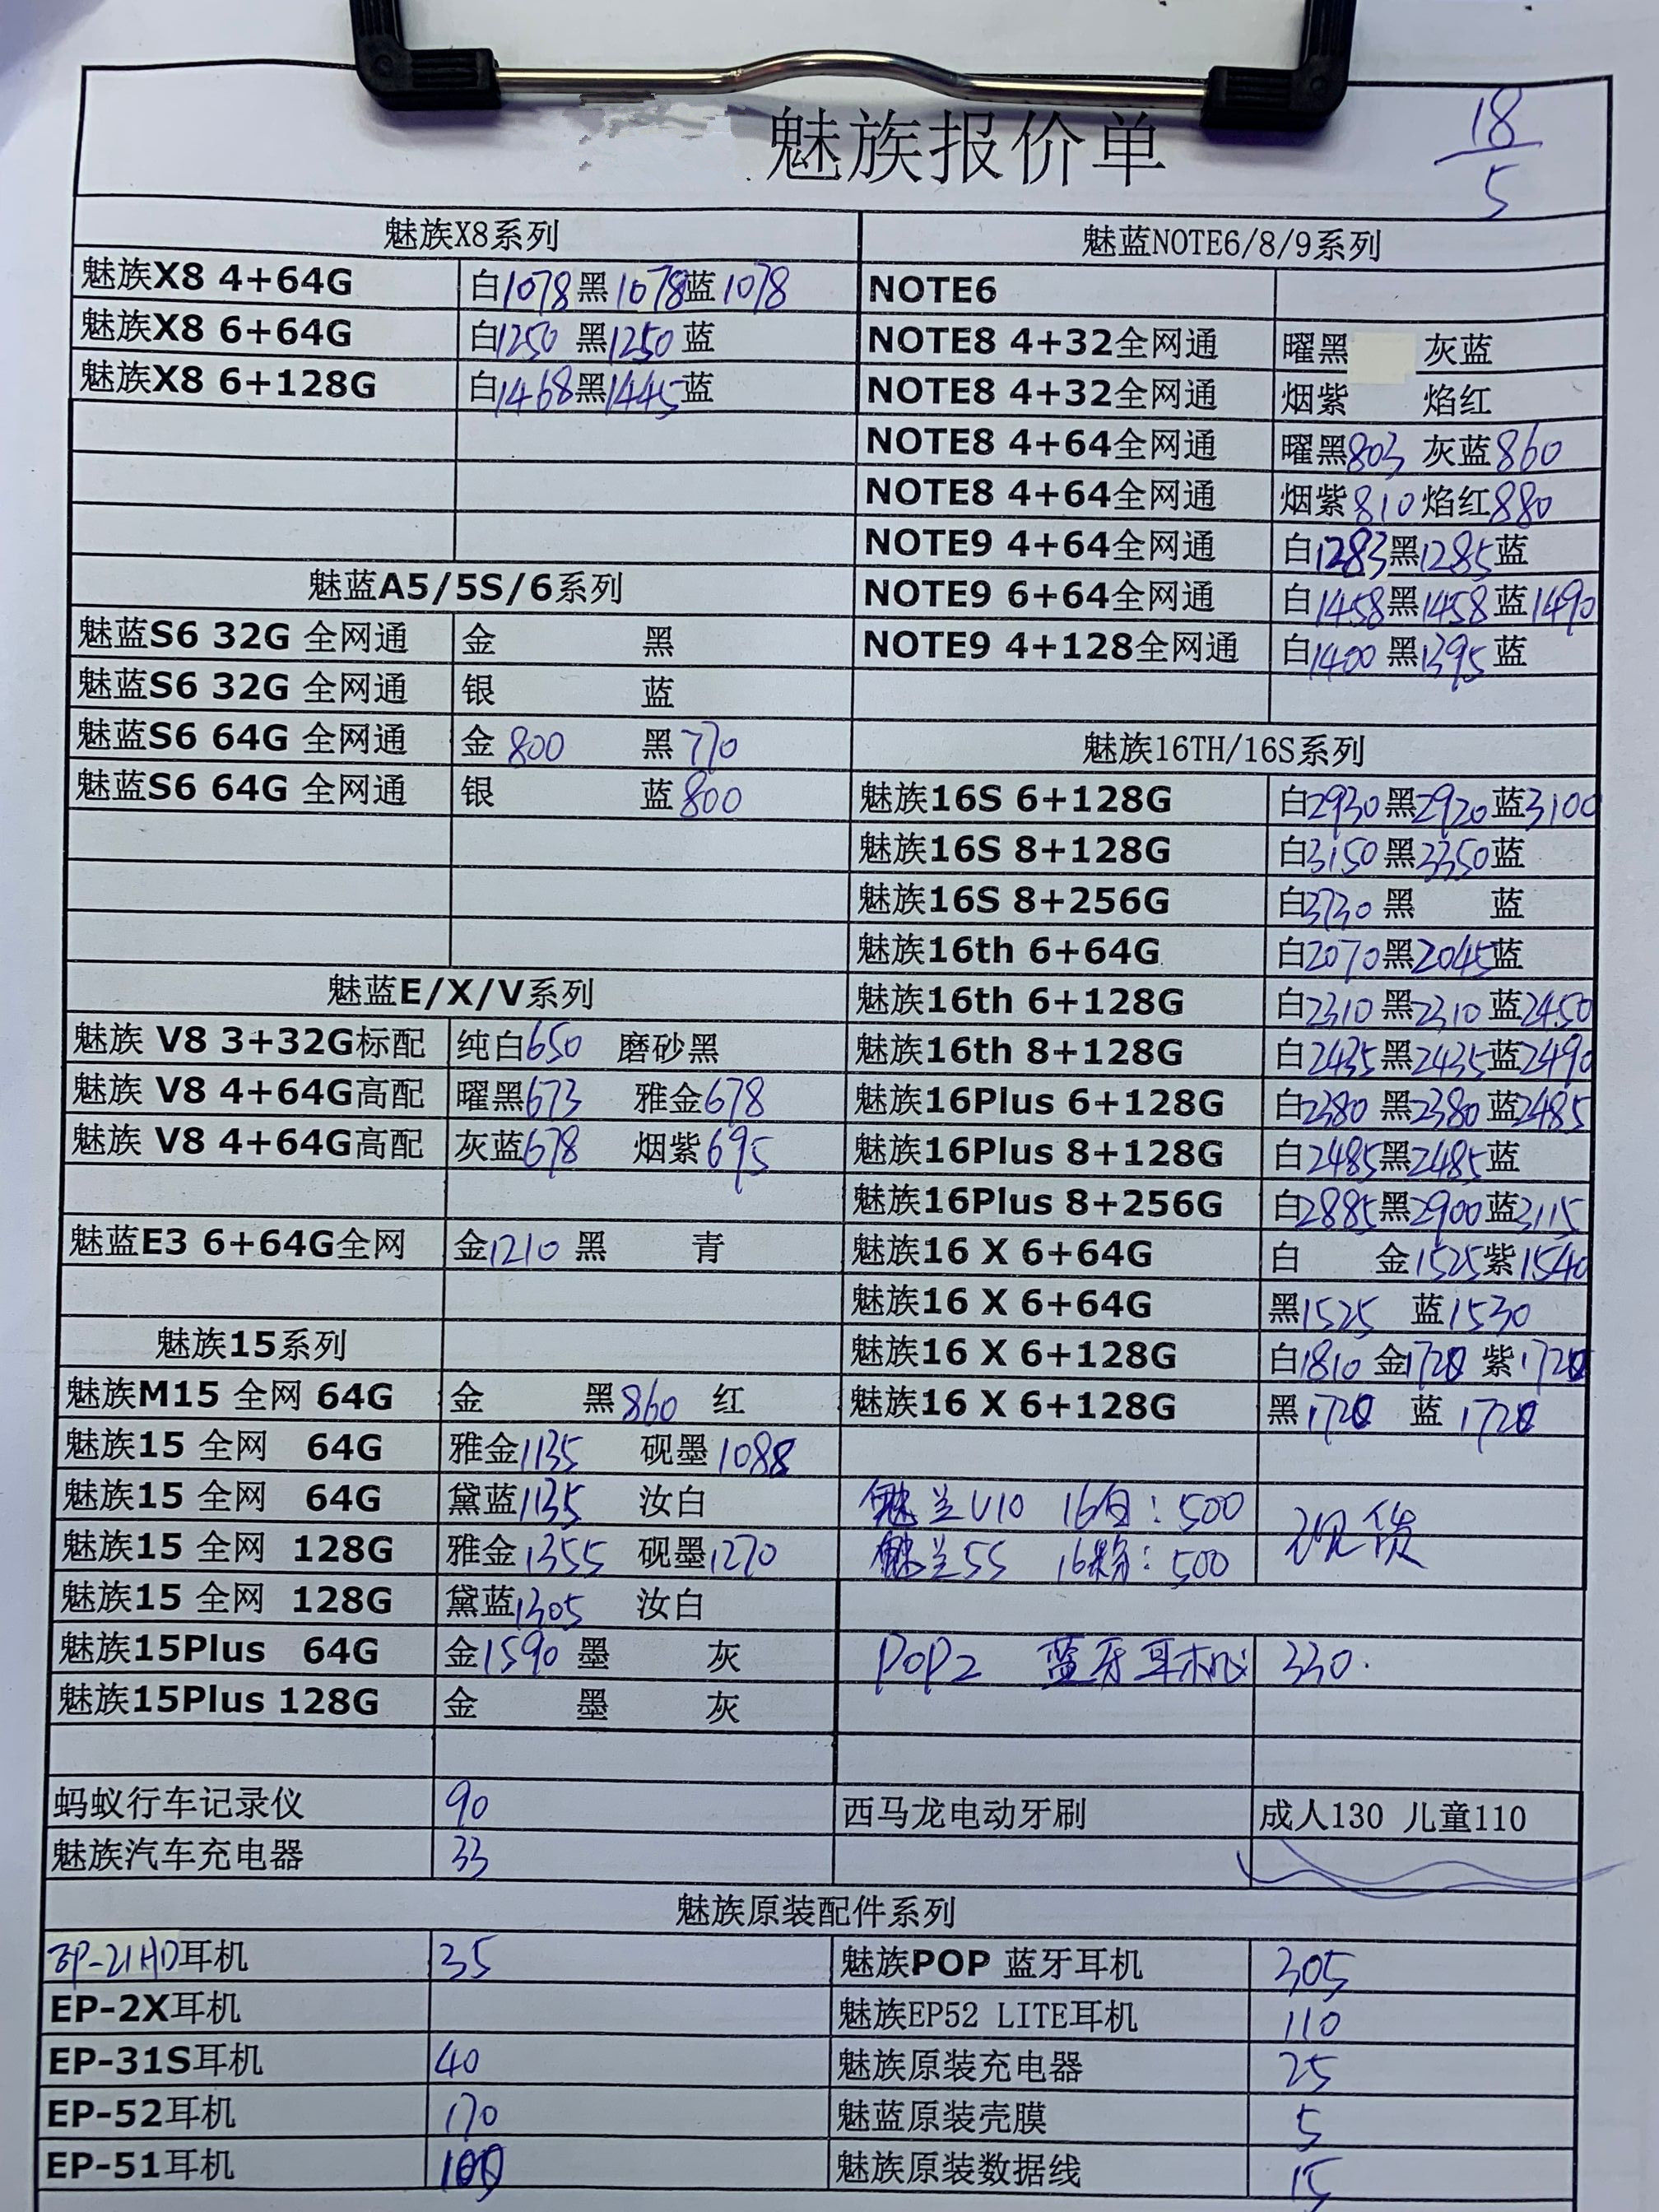 魅族报价单
18/5
魅族X8系列
魅族X8 4+64G 白1078 黑1078 蓝1078
魅族X8 6+64G 白1250 黑1250 蓝
魅族X8 6+128G 白1468 黑1445 蓝
魅蓝A5/5S/6系列
魅蓝S6 32G 全网通 金 黑
魅蓝S6 32G 全网通 银 蓝
魅蓝S6 64G 全网通 金 800 黑 770
魅蓝S6 64G 全网通 银 蓝 800
魅蓝E/X/V系列
魅族 V8 3+32G标配 纯白650 磨砂黑
魅族 V8 4+64G高配 曜黑673 雅金678
魅族 V8 4+64G高配 灰蓝678 烟紫695
魅蓝E3 6+64G全网 金1210 黑 青
魅族15系列
魅族M15 全网 64G 金 黑860 红
魅族15 全网 64G 雅金1135 砚墨1088
魅族15 全网 64G 黛蓝1135 汝白
魅族15 全网 128G 雅金1355 砚墨1270
魅族15 全网 128G 黛蓝1305 汝白
魅族15Plus 64G 金1590 墨 灰
魅族15Plus 128G 金 墨 灰
魅蓝NOTE6/8/9系列
NOTE6
NOTE8 4+32全网通 曜黑 灰蓝
NOTE8 4+32全网通 烟紫 焰红
NOTE8 4+64全网通 曜黑803 灰蓝860
NOTE8 4+64全网通 烟紫810 焰红880
NOTE9 4+64全网通 白1283 黑1285 蓝
NOTE9 6+64全网通 白1458 黑1458 蓝1490
NOTE9 4+128全网通 白1400 黑1395 蓝
魅族16TH/16S系列
魅族16S 6+128G 白2930 黑2920 蓝3100
魅族16S 8+128G 白3150 黑3350 蓝
魅族16S 8+256G 白3730 黑 蓝
魅族16th 6+64G 白2070 黑2045 蓝
魅族16th 6+128G 白2310 黑2310 蓝2450
魅族16th 8+128G 白2435 黑2435 蓝2490
魅族16Plus 6+128G 白2380 黑2380 蓝2485
魅族16Plus 8+128G 白2485 黑2485 蓝
魅族16Plus 8+256G 白2885 黑2900 蓝3115
魅族16 X 6+64G 白 金1525 紫1540
魅族16 X 6+64G 黑1525 蓝1530
魅族16 X 6+128G 白1810 金1720 紫1720
魅族16 X 6+128G 黑1720 蓝1720
魅兰U10 16白: 500 现货
魅兰5S 16粉: 500
POP2 蓝牙耳机 330.
蚂蚁行车记录仪 90 西马龙电动牙刷 成人130 儿童110
魅族汽车充电器 33
魅族原装配件系列
EP-21HD耳机 35 魅族POP 蓝牙耳机 305
EP-2X耳机 魅族EP52 LITE耳机 110
EP-31S耳机 40 魅族原装充电器 25
EP-52耳机 170 魅蓝原装壳膜 5
EP-51耳机 魅族原装数据线 15